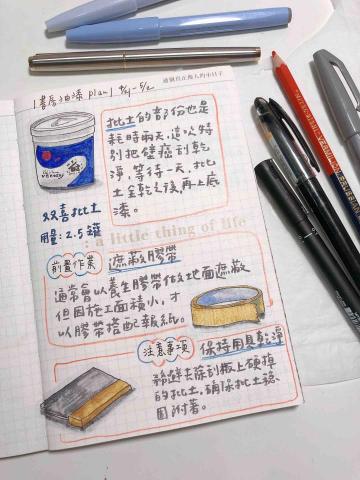 過個真正做人的小日子
書房油漆 plan 4/21-5/2
批土的部份也是
耗時兩天,這次特
別把壁癌刮乾
淨,等待一天,批
土全乾之後,再上底
漆。
双喜批土
用量:2.5 罐
: a little thing of life
前置作業
遮蔽膠帶
通常會以養生膠帶做地面遮蔽
但因施工面積小,才
以膠帶搭配報紙。
注意事項
保持用具乾淨
務避去除刮板上硬掉
的批土,確保批土穩
固附著。